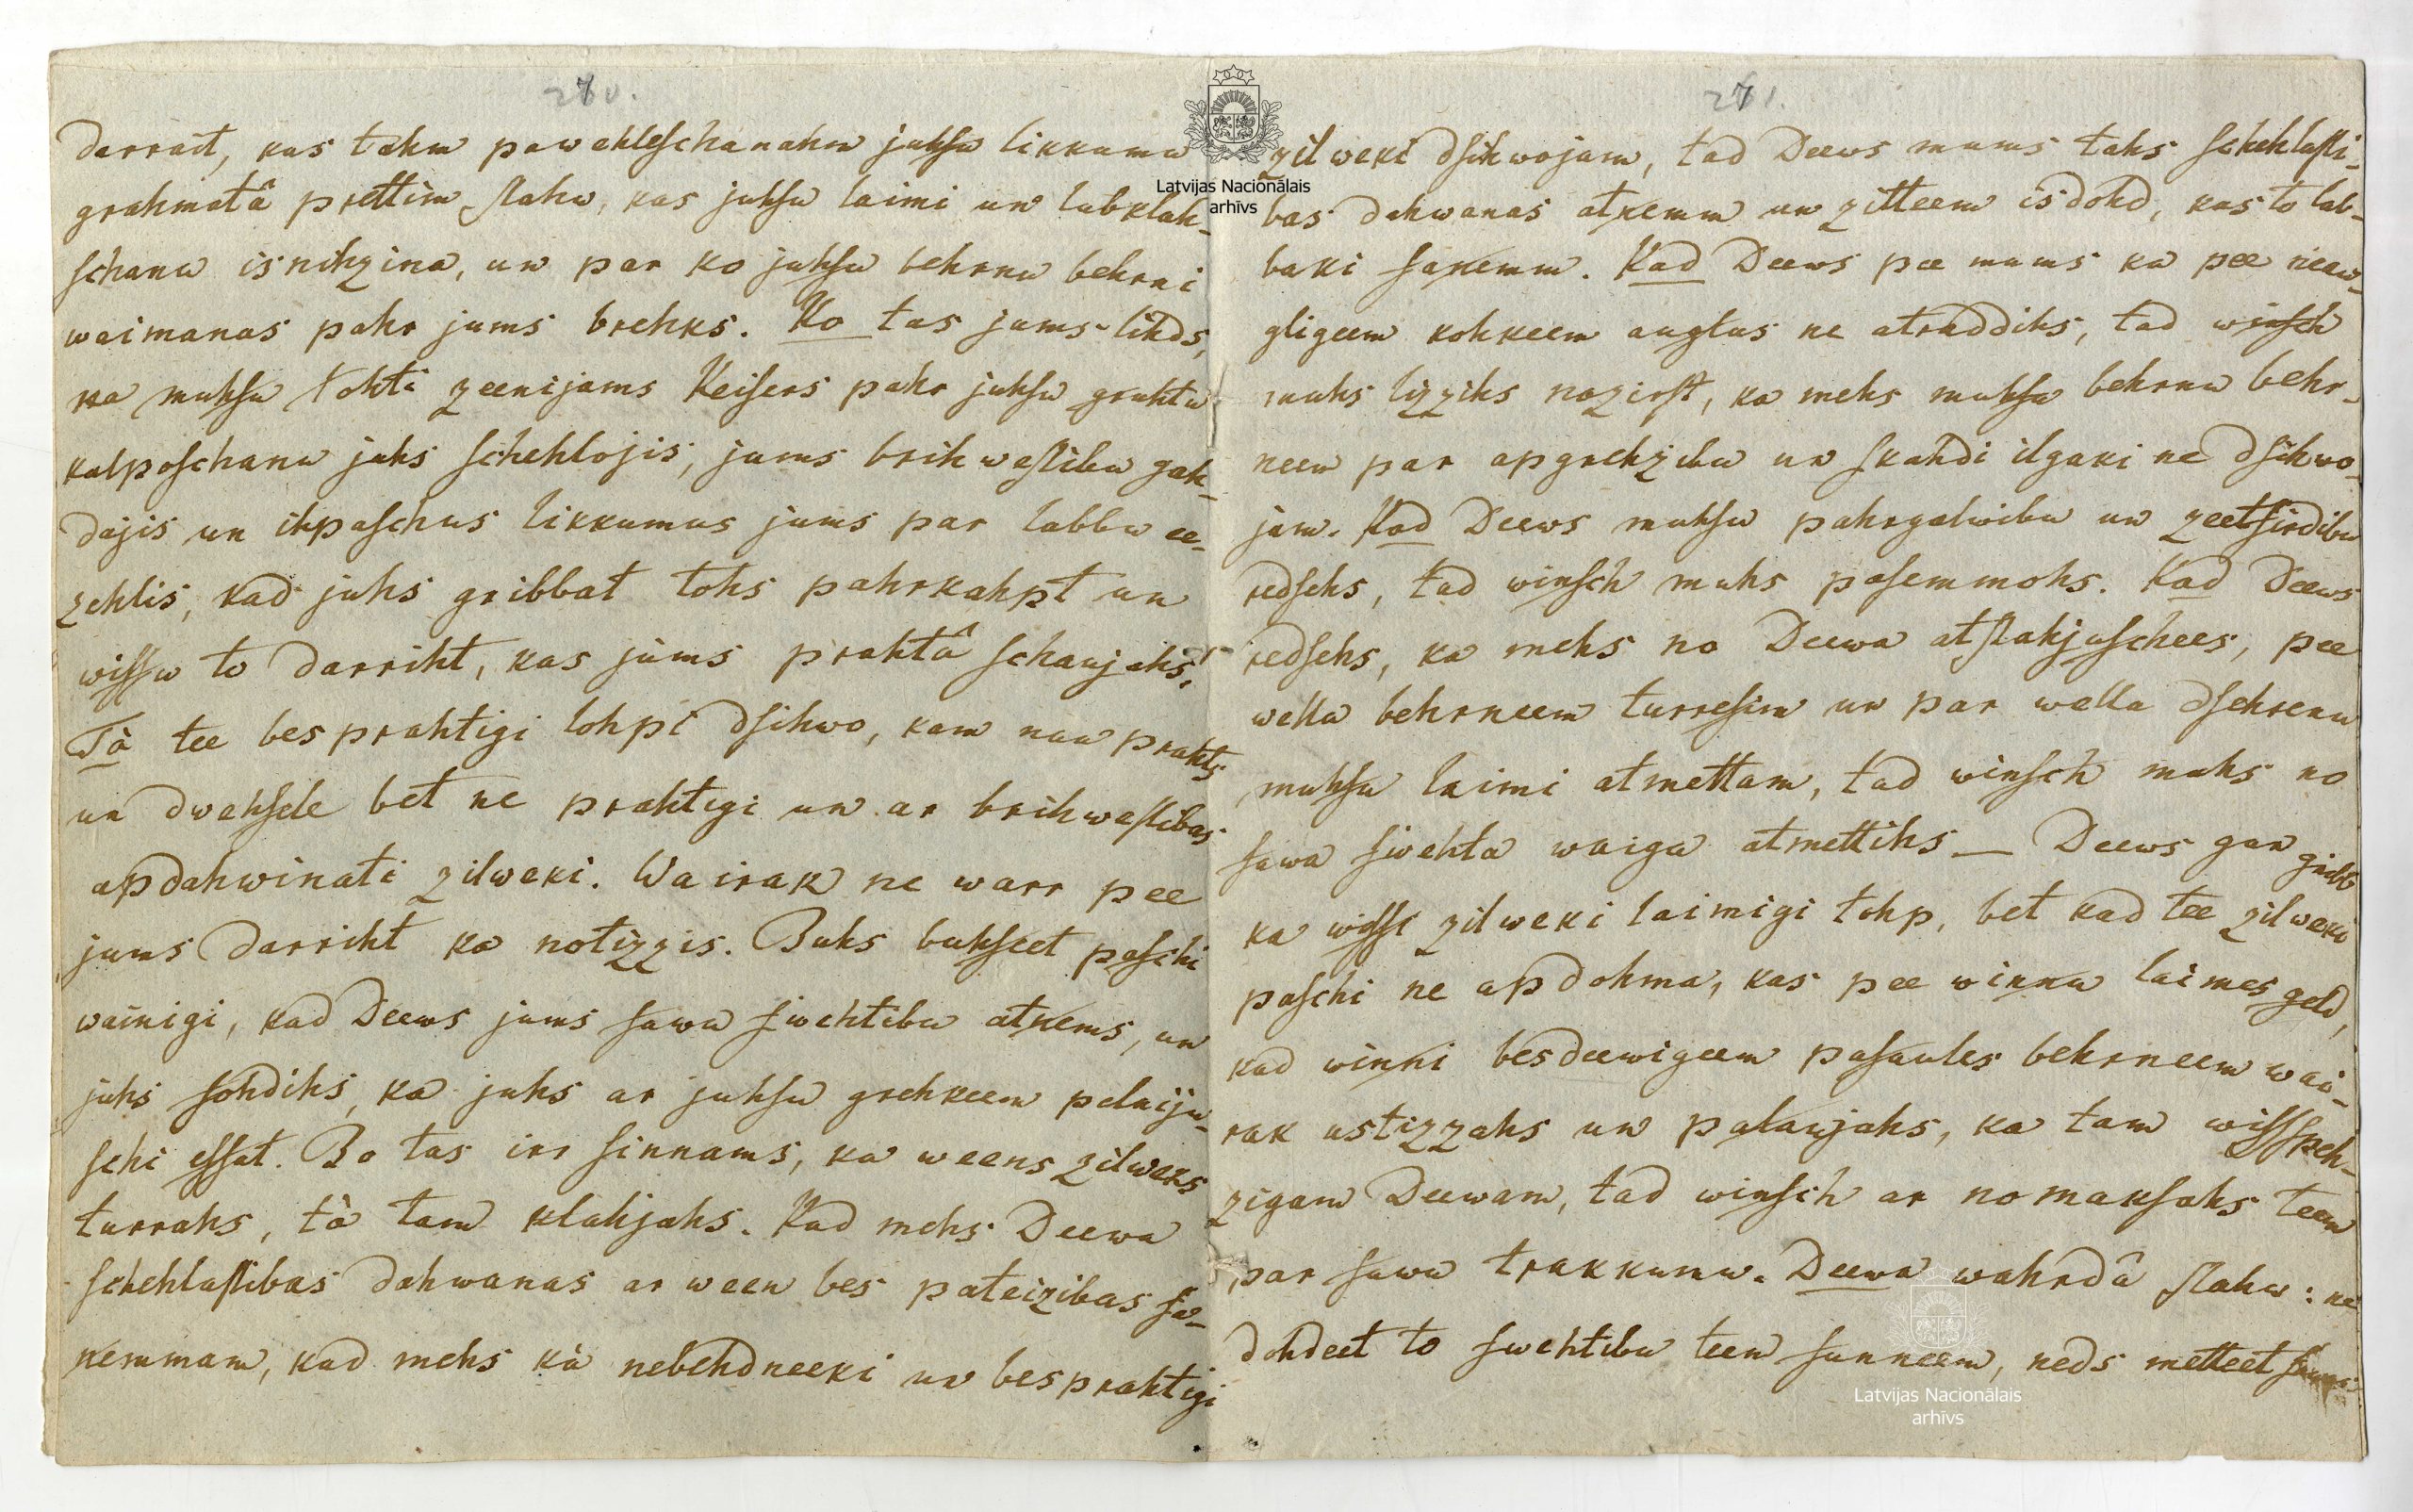 darrait, kas tahm pawehleschanahm juhsu likkuma
grahmatâ prettim stahw, kas juhsu laimi un labklah-
schanu isnihzina, un par ko juhsu behrnu behrni
waimanas pahr jums brehks. Ko tas jums lihds,
ka muhsu tohti zeenijams Keisers pahr juhsu gruhtu
kalposchanu juhs schehlojis, jums brihwestibu gah-
dajis un ihpaschus likkumus jums par labbu ee-
zehlis, kad juhs gribbat tohs pahrkahpt un
wissu to darriht, kas jums prahtâ schaujahs!
Tà tee besprahtigi lohpi dsihwo, kam naw prahts
un dwehsele bet ne prahtigi un ar brihwestibas
apdahwinati zilweki. Wairak ne warr pee
jums darriht ka notizzis. Buhs buhseet paschi
wainigi, kad Deews jums sawu swehtibu atņems, un
juhs sohdihs, ka juhs ar juhsu grehkeem pelniju-
schi essat. Bo tas irr sinnams, ka weens zilweks
turrahs, tà tam klahjahs. Kad mehs Deewa
schehlastibas dahwanas ar ween bes pateizibas sa-
ņemmam, kad mehs kà nebehdneeki un besprahtigi
zilweki dsihwojam, tad Deews mums tahs schehlasti-
bas dahwanas atņemm un zitteem isdohd, kas to lab-
baki saņemm. Kad Deews pee mums ka pee neau-
gligeem kohkeem auglus ne atraddihs, tad winsch
muhs lizzihs nozirst, ka mehs muhsu behrnu behr-
neem par apgrehzibu un skahdi ilgaki ne dsihwo-
jam. Kad Deews muhsu pahrgalwibu un zeetsirdibu
redsehs, tad winsch muhs pasemmohs. Kad Deews
redsehs, ka mehs no Deewa atstahjuschees, pee
wella behrneem turresim un par wella dsehrenu
muhsu laimi atmettam, tad winsch muhs no
sawa swehta waiga atmettihs — Deews gan gribb
ka wissi zilweki laimigi tohp, bet kad tee zilweki
paschi ne apdohma, kas pee winnu laimes geld,
kad winni besdeewigeem pasaules behrneem wai-
rak ustizzahs un palaujahs, ka tam wissspeh-
zigam Deewam, tad winsch ar nomaksahs teem
par sawu trakkumu. Deewa wahrdâ stahw: ne
dohdeet to swehtibu teem sunneem, neds metteet
Latvijas Nacionālais
arhīvs
Latvijas Nacionālais
arhīvs